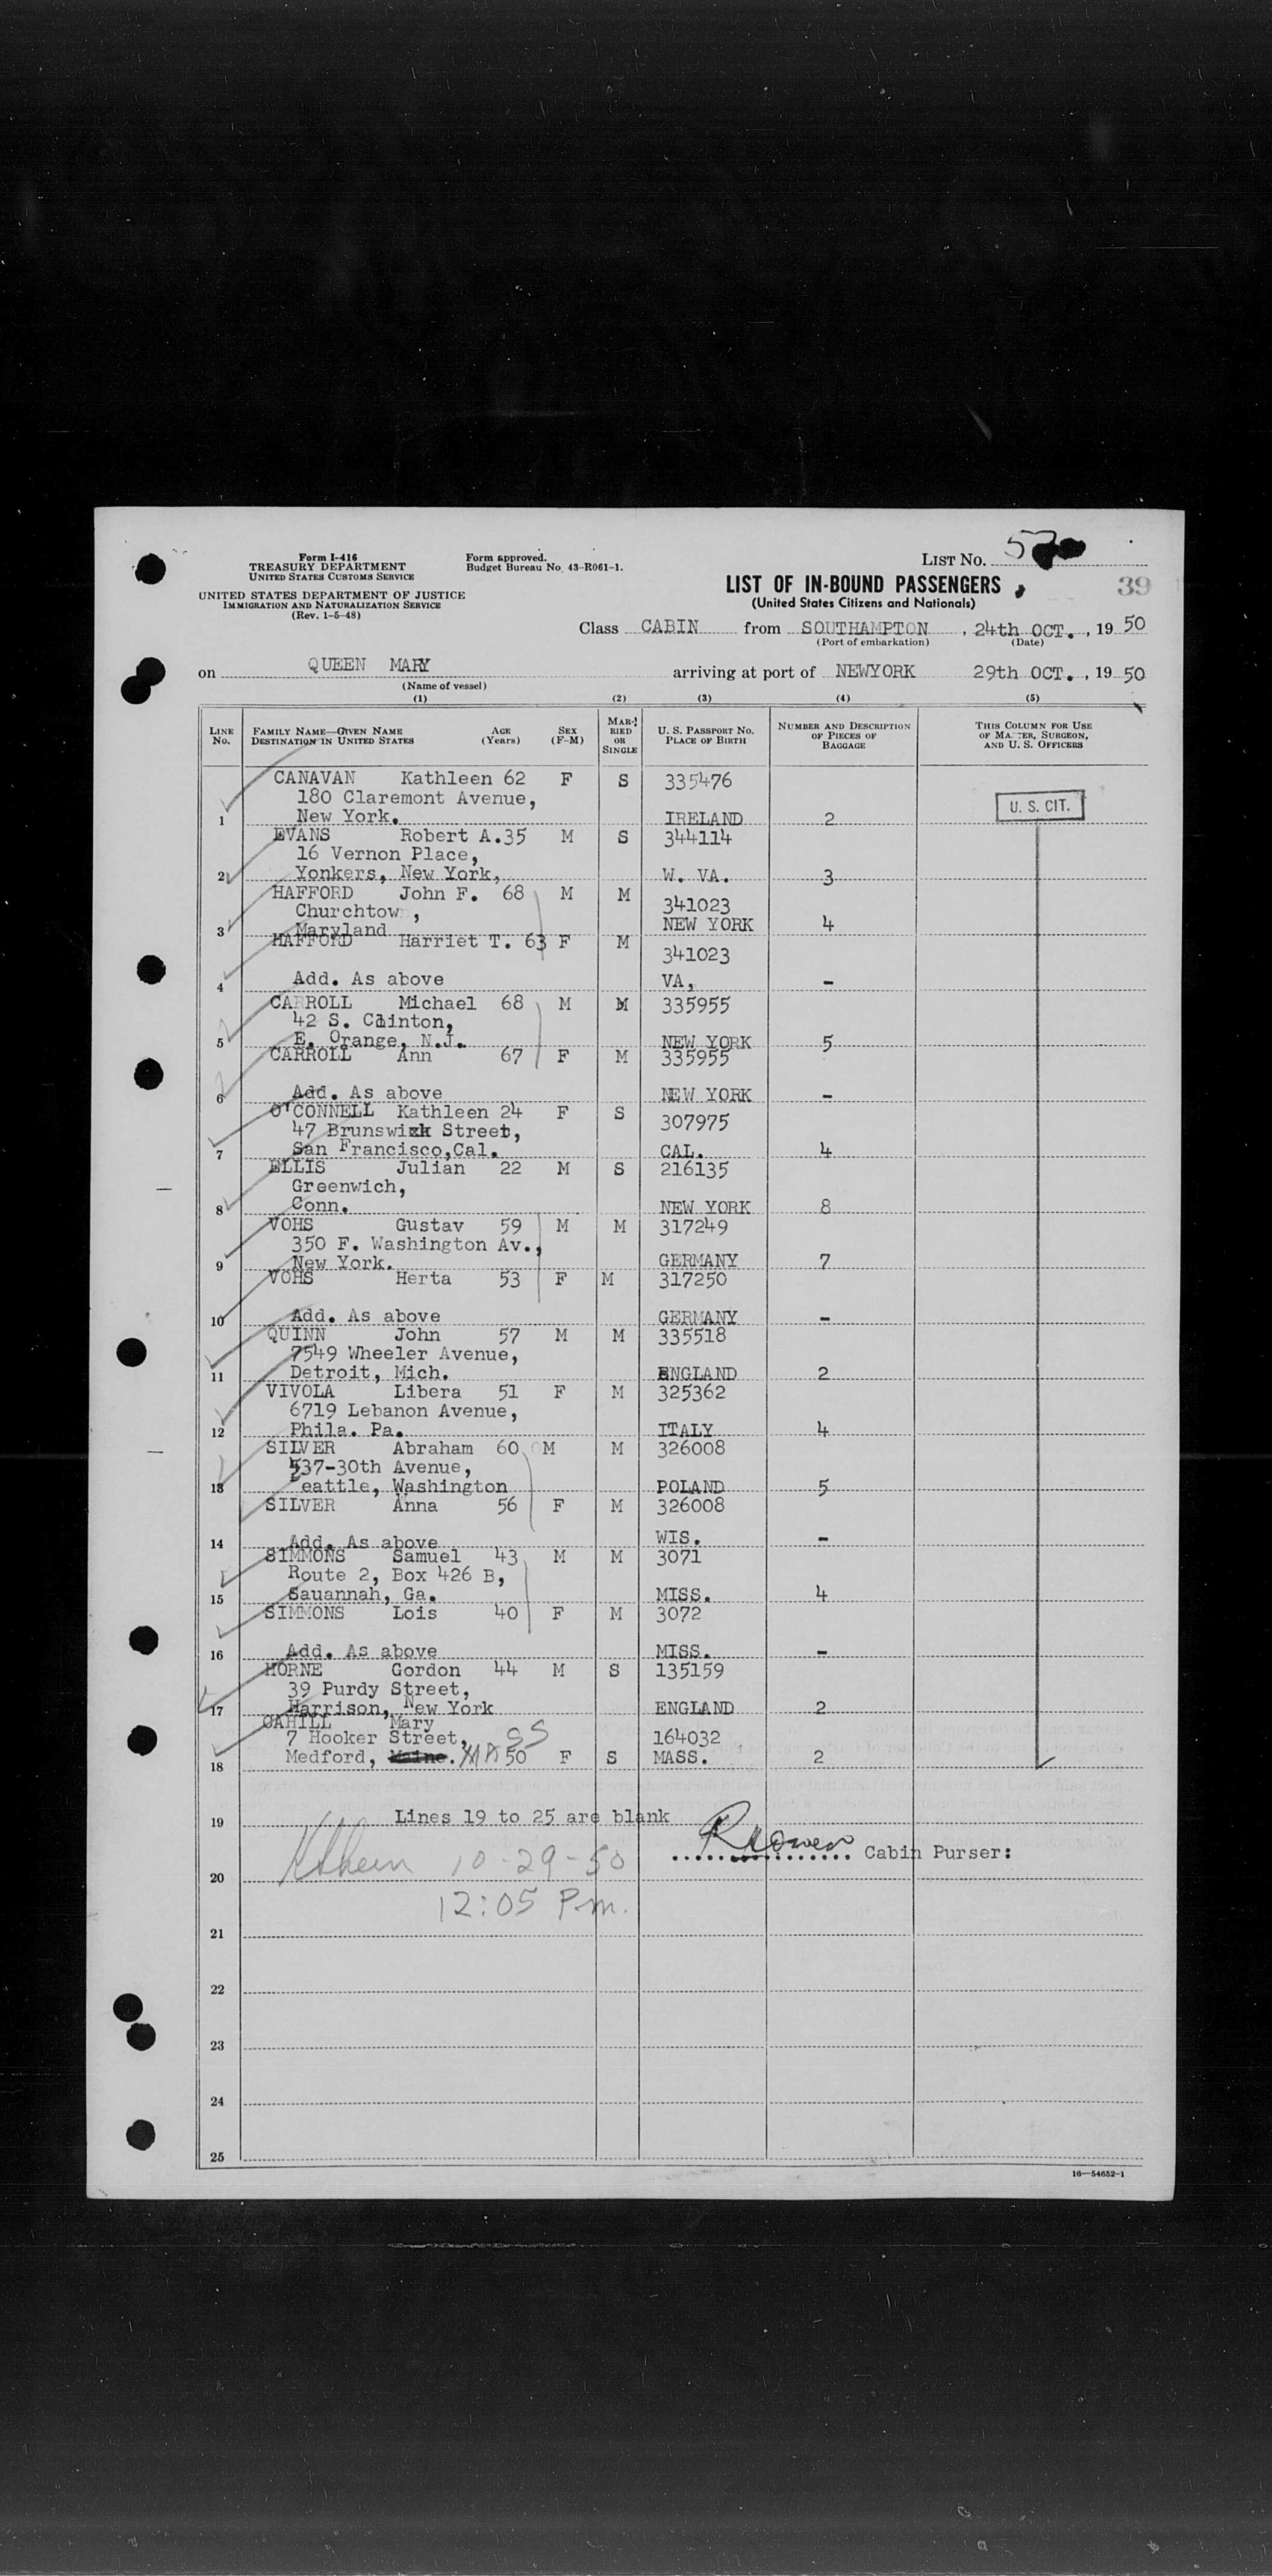 Form I-416
TREASURY DEPARTMENT
UNITED STATES CUSTOMS SERVICE
UNITED STATES DEPARTMENT OF JUSTICE
IMMIGRATION AND NATURALIZATION SERVICE
(Rev. 1-5-48)
Form approved.
Budget Bureau No. 43-R061-1.
LIST No.
LIST OF IN-BOUND PASSENGERS
(United States Citizens and Nationals)
39
Class CABIN from SOUTHAMPTON, 24th OCT., 19 50
(Port of embarkation) (Date)
on QUEEN MARY arriving at port of NEWYORK 29th OCT., 19 50
(Name of vessel)
(1) (2) (3) (4) (5)
LINE No. FAMILY NAME—GIVEN NAME DESTINATION IN UNITED STATES AGE (Years) SEX (F-M) MARRIED OR SINGLE U. S. PASSPORT No. PLACE OF BIRTH NUMBER AND DESCRIPTION OF PIECES OF BAGGAGE THIS COLUMN FOR USE OF MASTER, SURGEON, AND U. S. OFFICERS
CANAVAN Kathleen 62 F S 335476
180 Claremont Avenue,
1 New York. IRELAND 2 U. S. CIT.
EVANS Robert A. 35 M S 344114
16 Vernon Place,
2 Yonkers, New York, W. VA. 3
HAFFORD John F. 68 M M 341023
Churchtown,
3 Maryland NEW YORK 4
HAFFORD Harriet T. 63 F M 341023
4 Add. As above VA, -
CARROLL Michael 68 M M 335955
42 S. Clinton,
5 E. Orange, N.J. NEW YORK 5
CARROLL Ann 67 F M 335955
6 Add. As above NEW YORK -
O'CONNELL Kathleen 24 F S 307975
47 Brunswick Street,
7 San Francisco,Cal. CAL. 4
ELLIS Julian 22 M S 216135
Greenwich,
8 Conn. NEW YORK 8
VOHS Gustav 59 M M 317249
350 F. Washington Av.,
9 New York. GERMANY 7
VOHS Herta 53 F M 317250
10 Add. As above GERMANY -
QUINN John 57 M M 335518
7549 Wheeler Avenue,
11 Detroit, Mich. ENGLAND 2
VIVOLA Libera 51 F M 325362
6719 Lebanon Avenue,
12 Phila. Pa. ITALY 4
SILVER Abraham 60 M M 326008
537-30th Avenue,
13 eattle, Washington POLAND 5
SILVER Anna 56 F M 326008
14 Add. As above WIS. -
SIMMONS Samuel 43 M M 3071
Route 2, Box 426 B,
15 Sauannah, Ga. MISS. 4
SIMMONS Lois 40 F M 3072
16 Add. As above MISS. -
HORNE Gordon 44 M S 135159
39 Purdy Street,
17 Harrison, New York ENGLAND 2
CAHILL Mary
7 Hooker Street, 164032
18 Medford, Maine. MASS 50 F S MASS. 2
19 Lines 19 to 25 are blank
Cabin Purser:
10-29-50
20
12:05 P.m.
21
22
23
24
25
16—54652-1